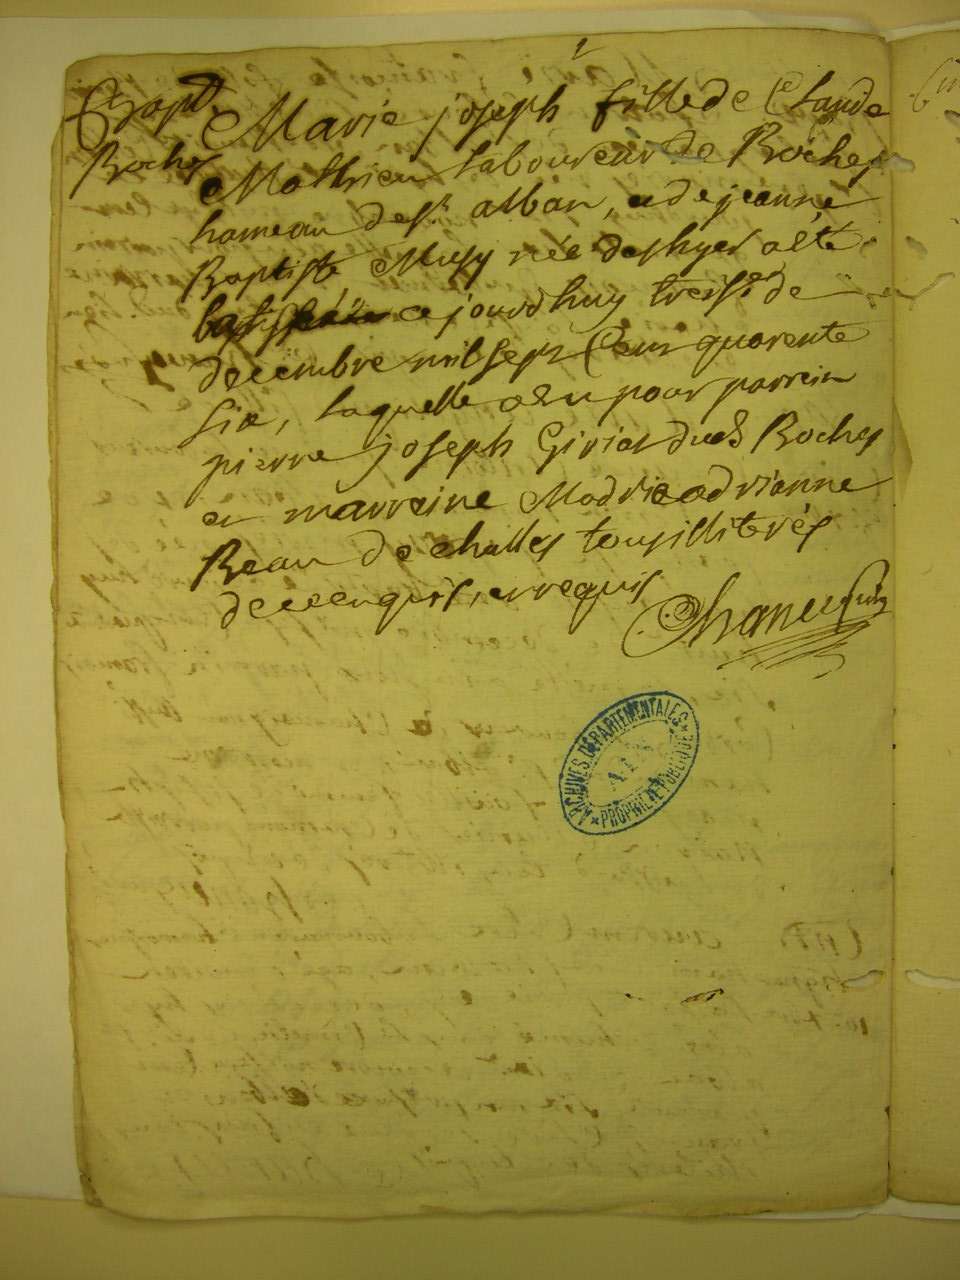 Bapt.
Roches
Marie joseph fille de Claude
Mathieu laboureur de Roches
hameau de st alban, et de jeanne
Baptiste Musy née deshyer a été
ce jourdhuy treise de
decembre mil sept Cens quarente
six, laquelle a eu pour parrein
pierre joseph Girier des Roches
et marreine adrianne
Beau de challes tous illiterés
de ce enquis, et requis
ARCHIVES DÉPARTEMENTALES
AIN
PROPRIÉTÉ PUBLIQUE